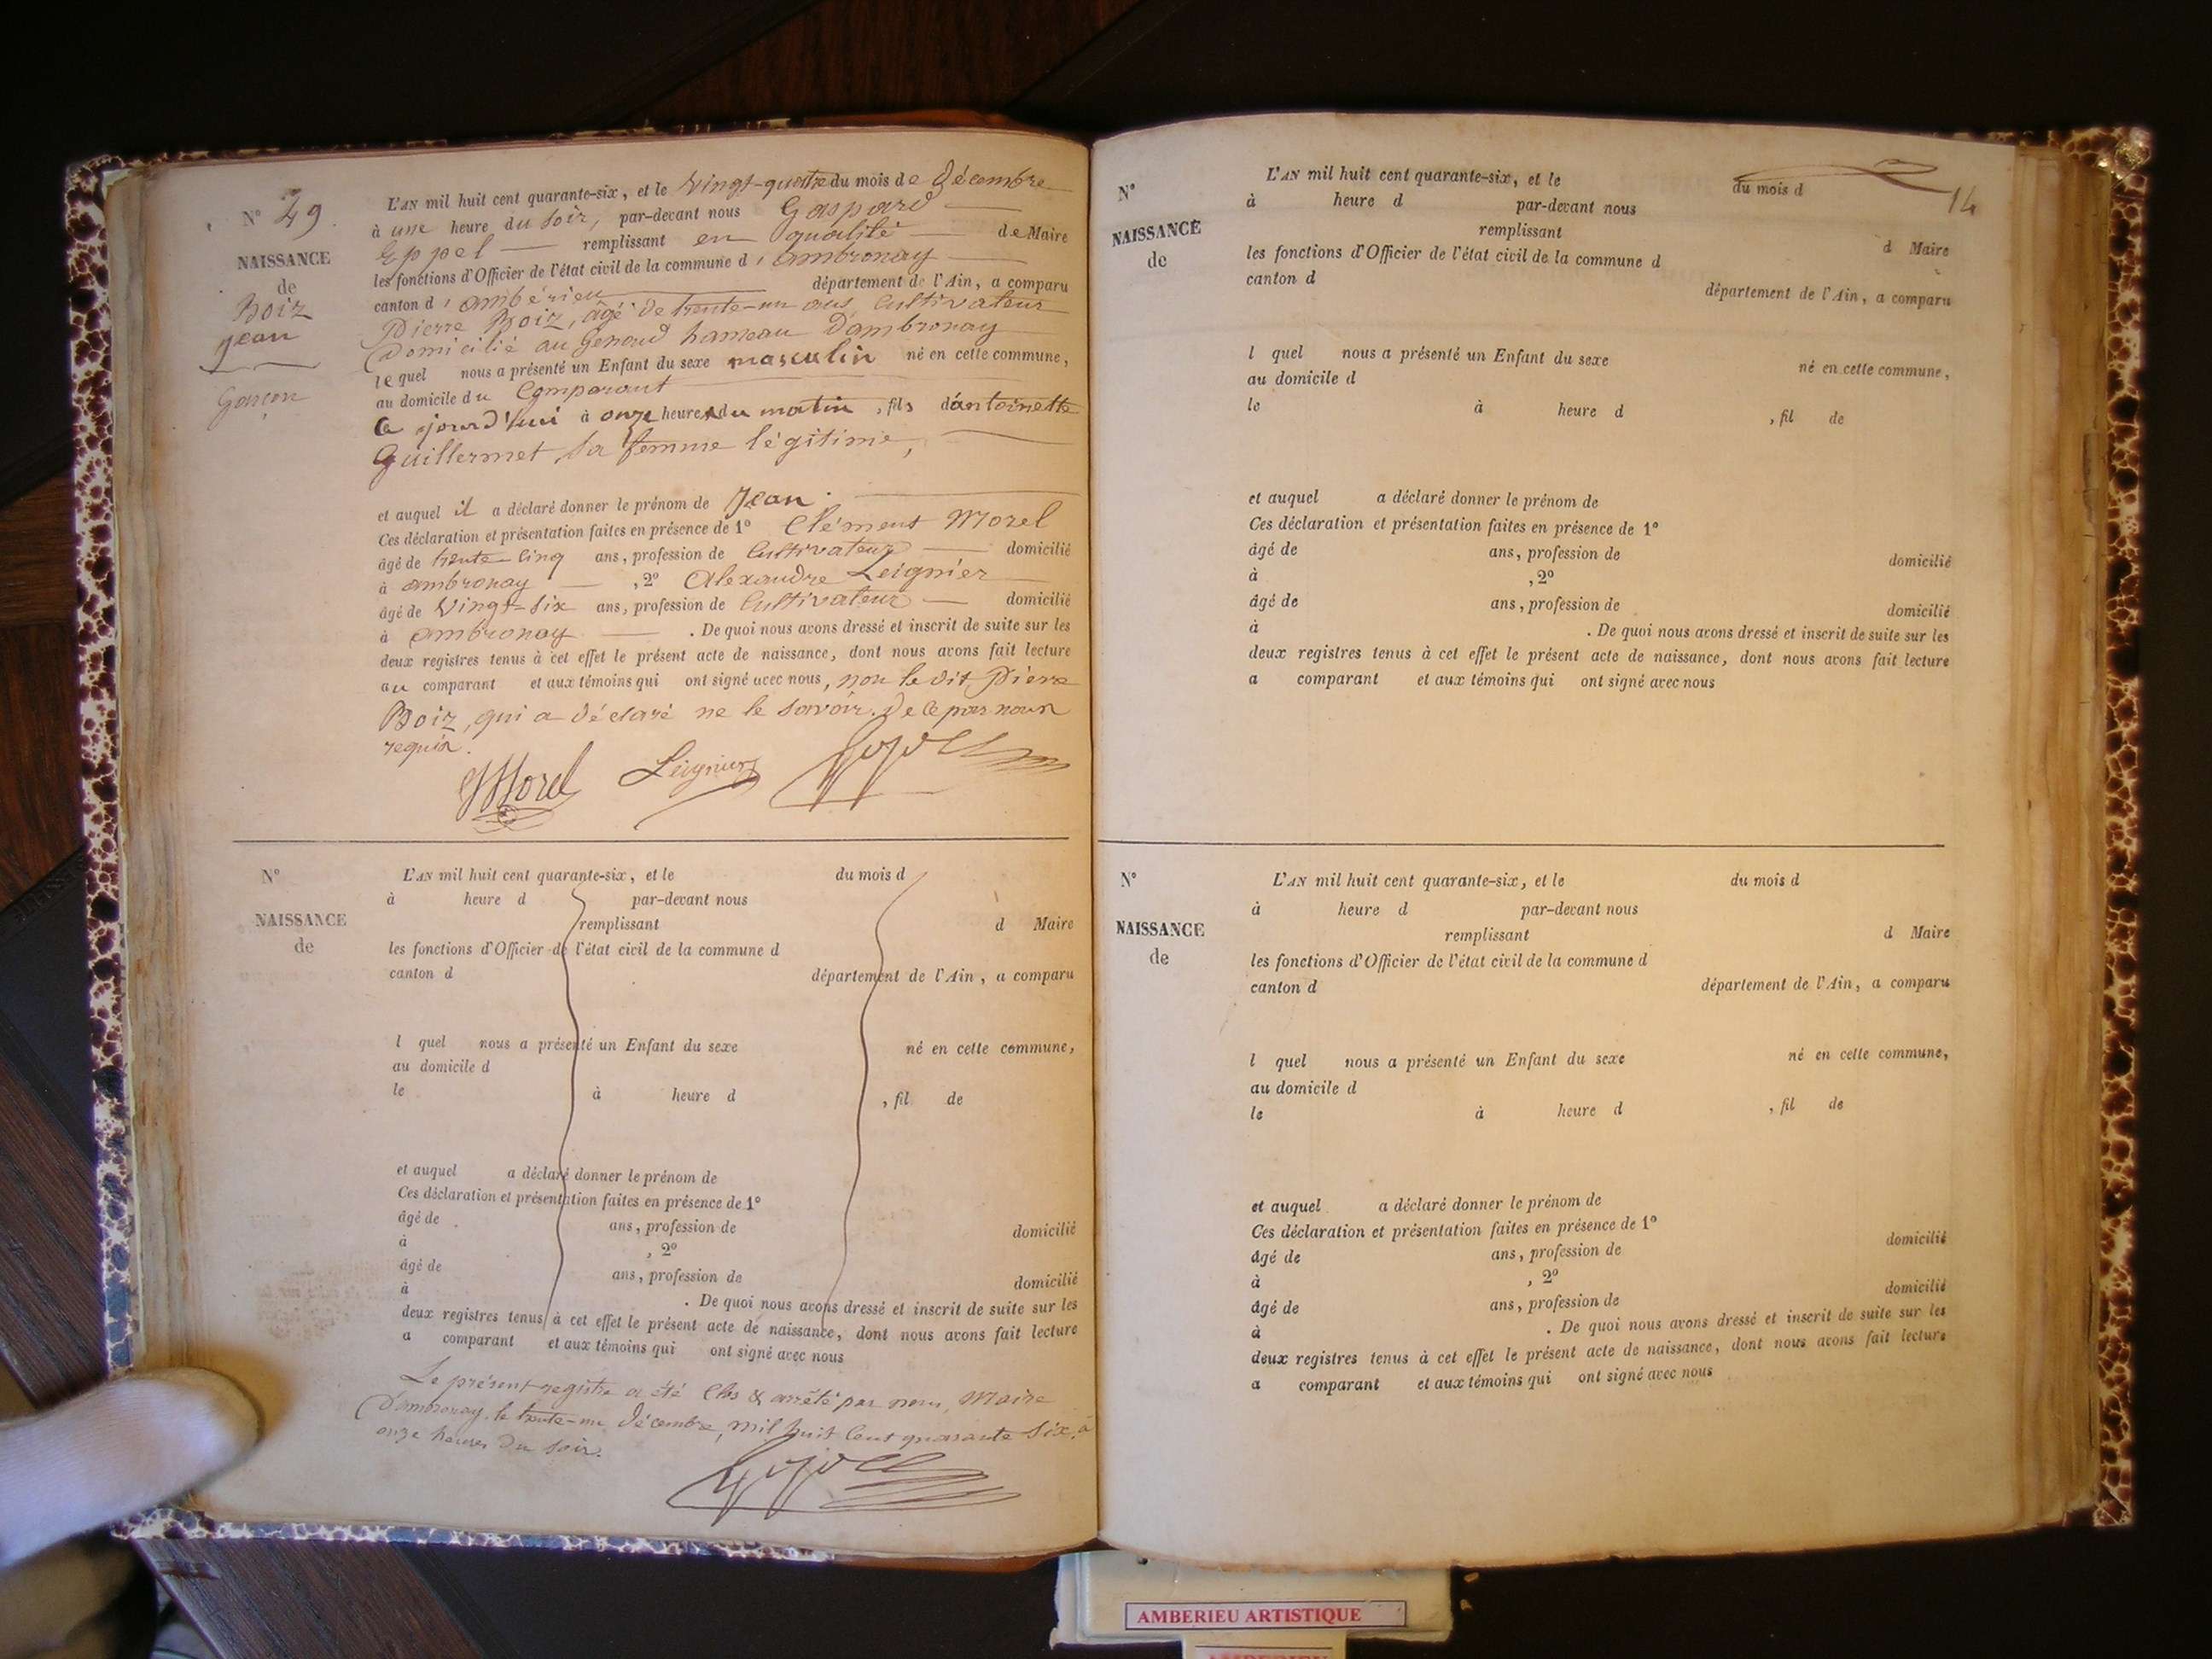 N° 49
NAISSANCE
de
Boiz
Jean
Garçon
L'AN mil huit cent quarante-six, et le vingt-quatre du mois de décembre
à une heure du soir, par-devant nous Gaspard
Eppel remplissant en qualité de Maire
les fonctions d'Officier de l'état civil de la commune d'ambronay
canton d'ambérieu département de l'Ain, a comparu
Pierre Boiz, âgé de trente-un ans, cultivateur
Domicilié au Genoud hameau D'ambronay
lequel nous a présenté un Enfant du sexe masculin né en cette commune,
au domicile du Comparant
ce jourd'hui à onze heures du matin, fils d'antoinette
Guillermet, sa femme légitime,
et auquel il a déclaré donner le prénom de Jean.
Ces déclaration et présentation faites en présence de 1° Clément Morel
âgé de trente-cinq ans, profession de Cultivateur domicilié
à ambronay, 2° Alexandre Leignier
âgé de vingt-six ans, profession de Cultivateur domicilié
à ambronay. De quoi nous avons dressé et inscrit de suite sur les
deux registres tenus à cet effet le présent acte de naissance, dont nous avons fait lecture
au comparant et aux témoins qui ont signé avec nous, non le dit Pierre
Boiz, qui a déclaré ne le savoir. De ce par nous
requis.
Morel Leignier
N°
NAISSANCE
de
L'AN mil huit cent quarante-six, et le du mois d
à heure d par-devant nous
remplissant d Maire
les fonctions d'Officier de l'état civil de la commune d
canton d département de l'Ain, a comparu
l quel nous a présenté un Enfant du sexe né en cette commune,
au domicile d
le à heure d , fil de
et auquel a déclaré donner le prénom de
Ces déclaration et présentation faites en présence de 1°
âgé de ans, profession de domicilié
à , 2°
âgé de ans, profession de domicilié
à . De quoi nous avons dressé et inscrit de suite sur les
deux registres tenus à cet effet le présent acte de naissance, dont nous avons fait lecture
a comparant et aux témoins qui ont signé avec nous
Le présent registre a été Clos & arrêté par nous, Maire
D'ambronay, le trente-un Décembre, mil huit Cent quarante Six, à
onze heures du soir.
14
N°
NAISSANCE
de
L'AN mil huit cent quarante-six, et le du mois d
à heure d par-devant nous
remplissant d Maire
les fonctions d'Officier de l'état civil de la commune d
canton d département de l'Ain, a comparu
l quel nous a présenté un Enfant du sexe né en cette commune,
au domicile d
le à heure d , fil de
et auquel a déclaré donner le prénom de
Ces déclaration et présentation faites en présence de 1°
âgé de ans, profession de domicilié
à , 2°
âgé de ans, profession de domicilié
à . De quoi nous avons dressé et inscrit de suite sur les
deux registres tenus à cet effet le présent acte de naissance, dont nous avons fait lecture
a comparant et aux témoins qui ont signé avec nous
N°
NAISSANCE
de
L'AN mil huit cent quarante-six, et le du mois d
à heure d par-devant nous
remplissant d Maire
les fonctions d'Officier de l'état civil de la commune d
canton d département de l'Ain, a comparu
l quel nous a présenté un Enfant du sexe né en cette commune,
au domicile d
le à heure d , fil de
et auquel a déclaré donner le prénom de
Ces déclaration et présentation faites en présence de 1°
âgé de ans, profession de domicilié
à , 2°
âgé de ans, profession de domicilié
à . De quoi nous avons dressé et inscrit de suite sur les
deux registres tenus à cet effet le présent acte de naissance, dont nous avons fait lecture
a comparant et aux témoins qui ont signé avec nous
AMBERIEU ARTISTIQUE